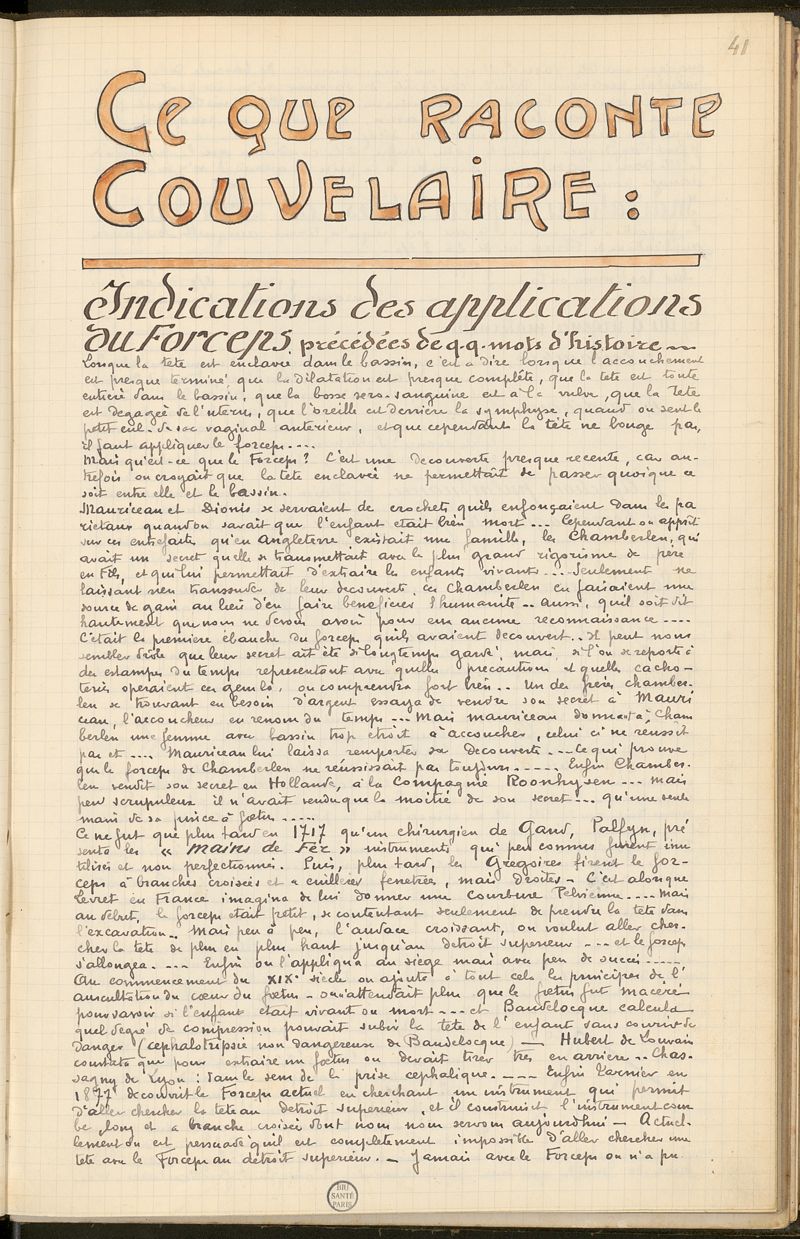 41
Ce que raconte
Couvelaire :
Indications des applications
du Forceps, précédées de q.q. mots d'histoire —
Lorsque la tete est enclavée dans le bassin, c'est a dire lorsque l'accouchement
est presque terminé, que la dilatation est presque complète, que la tete est toute
entiere dans le bassin, que la bosse sero-sanguine est à la vulve, que la tete
est degagée de l'uterus, que l'oreille est derriere la symphyse, quand on sent le
petit cul-de sac vaginal antérieur, et que cependant la tête ne bouge pas,
il faut appliquer le forceps....
Mais qu'est-ce que le Forceps? C'est une decouverte presque recente, car au-
trefois on croyait que la tete enclavée ne permettait de passer quoique ce
soit entre elle et le bassin.
Mauriceau et Dionis se servaient de crochets qu'ils enfonçaient dans les pa
rietaux quand on savait que l'enfant etait bien mort... Cependant on apprit
sur ces entrefaits qu'en Angleterre existait une famille, les Chamberlen, qui
avait un secret qu'elle se transmettait avec le plus grand rigorisme de père
en fils, et qui lui permettait d'extraire les enfants vivants... Seulement ne
laissant rien transsuder de leur decouverte, ces Chamberlen en faisaient une
source de gain au lieu d'en faire beneficier l'humanité.. aussi, qu'il soit dit
hautement que nous ne devons avoir pour eux aucune reconnaissance....
C'était la premiere ébauche du forceps qu'ils avaient decouvert.. Il peut nous
sembler drole que leur secret ait été si longtemps gardé, mais si l'on se reporte à
des estampes du temps representant avec quelles precautions et quelles cacho-
teries operaient ces gens là, on comprendra fort bien.. Un des frères Chamber-
len se trouvant en besoin d'argent essaya de vendre son secret à Mauri
ceau, l'accoucheur en renom du temps... Mais Mauriceau donnant à Cham
berlen une femme avec bassin trop étroit à accoucher, celui ci ne reussit
pas et.... Mauriceau lui laissa remporter sa Decouverte...Ce qui prouve
que le forceps de Chamberlen ne réussissait pas toujours..... Enfin Chamber-
len vendit son secret en Hollande, à la Compagnie Roonhysen... mais
peu scrupuleux il n'avait vendu que la moitié de son secret... qu'une seule
main de sa pince à fœtus.....
Ce ne fut que plus tard en 1717 qu'un chirurgien de Gand, Palfyn, pré
senta les « Mains de Fer » instruments qui peu connus furent inu
tilisés et non perfectionnés. Puis, plus tard, les Gregoires firent le for-
ceps à branches croisées et a cuillères fenetrées, mais droites - C'est alors que
Levret en France imagina de lui donner une courbure Pelvienne.... Mais
au début, le forceps etait petit, se contentant seulement de prendre la tete dans
l'excavation.. Mais peu à peu, l'audace croissant, on voulut aller cher-
cher la tete de plus en plus haut jusqu'au detroit superieur --- et le forceps
s'allongea. --- Enfin on l'appliqua au siege mais avec peu de succès -----
Au commencement du XIXe siecle on ajouta à tout cela les principes de l'
auscultation du cœur du fœtus - on n'attendait plus que le fœtus fut macéré
pour savoir si l'enfant etait vivant ou mort --- et Baudelocque calcula
quel degré de compression pouvait subir la tete de l'enfant sans courir de
danger (cephalotripsie non dangereuse de Baudelocque) — Hubert de Louvain
constata que pour extraire un fœtus on devait tirer très en arriere .. Chas-
sagny de Lyon : dans le sens de la prise cephalique. --- Enfin Tarnier en
1877 decouvrit le Forceps actuel en cherchant un instrument qui permit
d'aller chercher la tete au détroit superieur, et il construisit l'instrument cour
be, long et a branche croisée dont nous nous servons aujourd'hui — Actuel-
lement on est persuadé qu'il est completement impossible d'aller chercher une
tete avec le Forceps au détroit superieur. - Jamais avec le Forceps on n'a pu
BIU
SANTÉ
PARIS